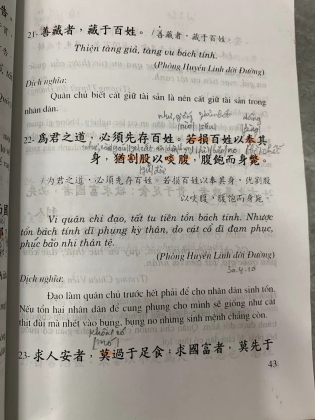 21- 善藏者，藏于百姓。（善藏者，藏于百姓。
Thiện tàng giả, tàng vu bách tính.
(Phòng Huyền Linh đời Đường)
Dịch nghĩa:
Quân chủ biết cất giữ tài sản là nên cất giữ tài sản trong
nhân dân.
22- 爲君之道，必須先存百姓。若損百姓以奉其
身，猶割股以啖腹，腹飽而身斃。
（为君之道，必须先存百姓。若损百姓以奉其身，犹割股
以啖腹，腹饱而身毙。
Vi quân chi đạo, tất tu tiên tồn bách tính. Nhược
tổn bách tính dĩ phụng kỳ thân, do cát cổ dĩ đạm phục,
phúc bão nhi thân tệ.
(Phòng Huyền Linh đời Đường)
30.4.10
Dịch nghĩa:
Đạo làm quân chủ trước hết phải để cho nhân dân sinh tồn.
Nếu tổn hại nhân dân để cung phụng cho mình sẽ giống như cắt
thịt đùi mà nhét vào bụng, bụng no nhưng sinh mệnh chẳng còn.
23- 求人安者，莫過于足食；求國富者，莫先于
43